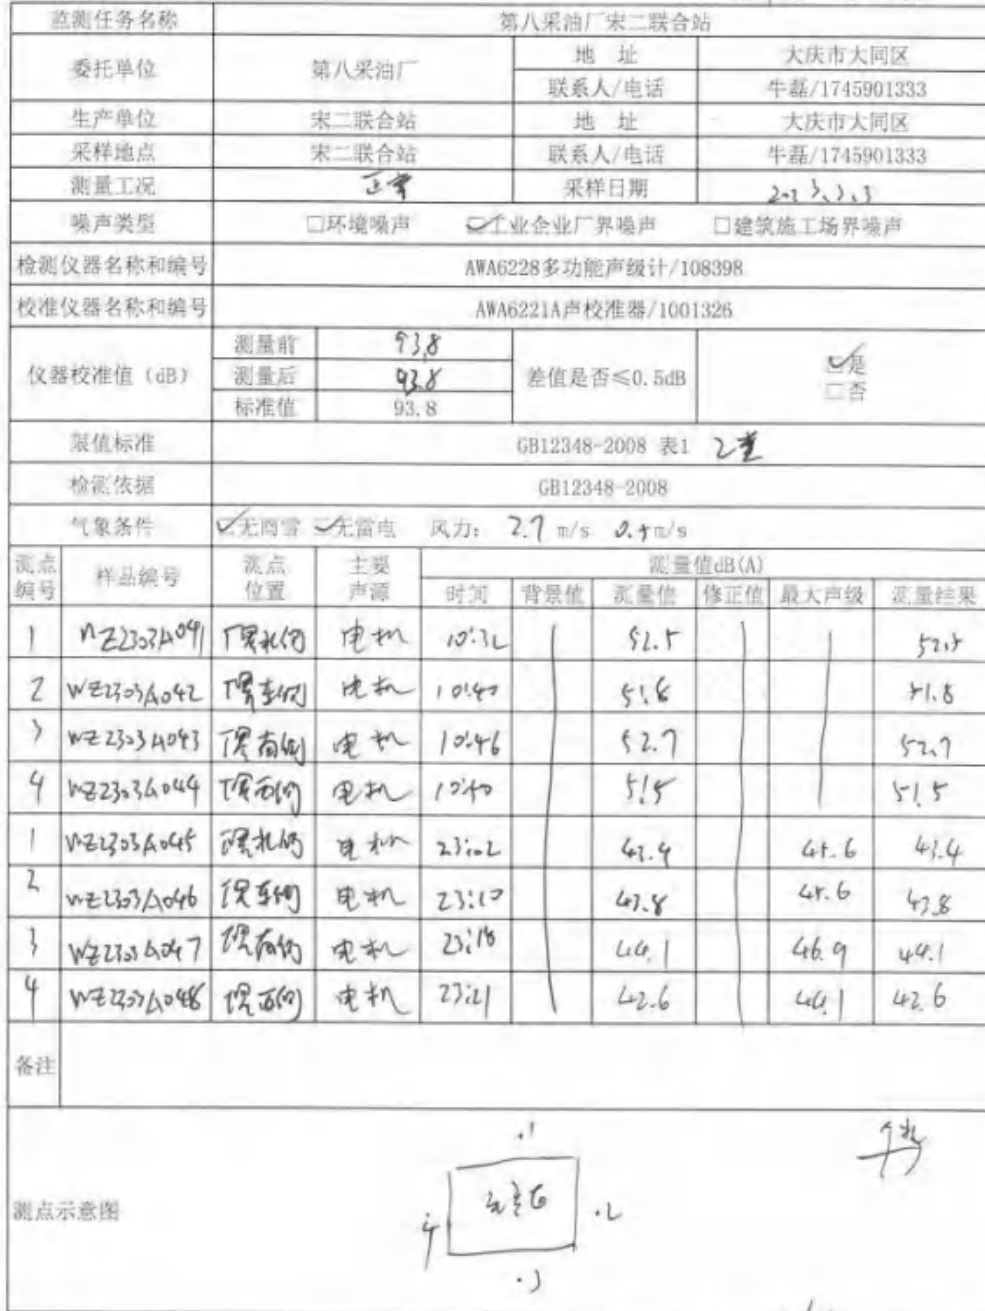 监测任务名称 第八采油厂宋二联合站
委托单位 第八采油厂 地 址 大庆市大同区
联系人/电话 牛磊/1745901333
生产单位 宋二联合站 地 址 大庆市大同区
采样地点 宋二联合站 联系人/电话 牛磊/1745901333
测量工况 正常 采样日期 2023.3.3
噪声类型 □环境噪声 ☑工业企业厂界噪声 □建筑施工场界噪声
检测仪器名称和编号 AWA6228多功能声级计/108398
校准仪器名称和编号 AWA6221A声校准器/1001326
仪器校准值（dB） 测量前 93.8 差值是否≤0.5dB ☑是
测量后 93.8 □否
标准值 93.8
限值标准 GB12348-2008 表1 2类
检测依据 GB12348-2008
气象条件 ☑无雨雪 ☑无雷电 风力： 2.7 m/s m/s
测点编号 样品编号 测点位置 主要声源 测量值dB(A)
时间 背景值 测量值 修正值 最大声级 测量结果
1 WZ2303A041 厂界北侧 电机 10:32 52.5 52.5
2 WZ2303A042 厂界东侧 电机 10:40 51.8 51.8
3 WZ2303A043 厂界南侧 电机 10:46 52.7 52.7
4 WZ2303A044 厂界西侧 电机 51.5 51.5
1 WZ2303A045 厂界北侧 电机 23:02 43.4 45.6 43.4
2 WZ2303A046 厂界东侧 电机 23:10 43.8 45.6 43.8
3 WZ2303A047 厂界南侧 电机 23:18 44.1 46.9 44.1
4 WZ2303A048 厂界西侧 电机 23:21 42.6 44.1 42.6
备注
·1 北
测点示意图 4 ·2
·3